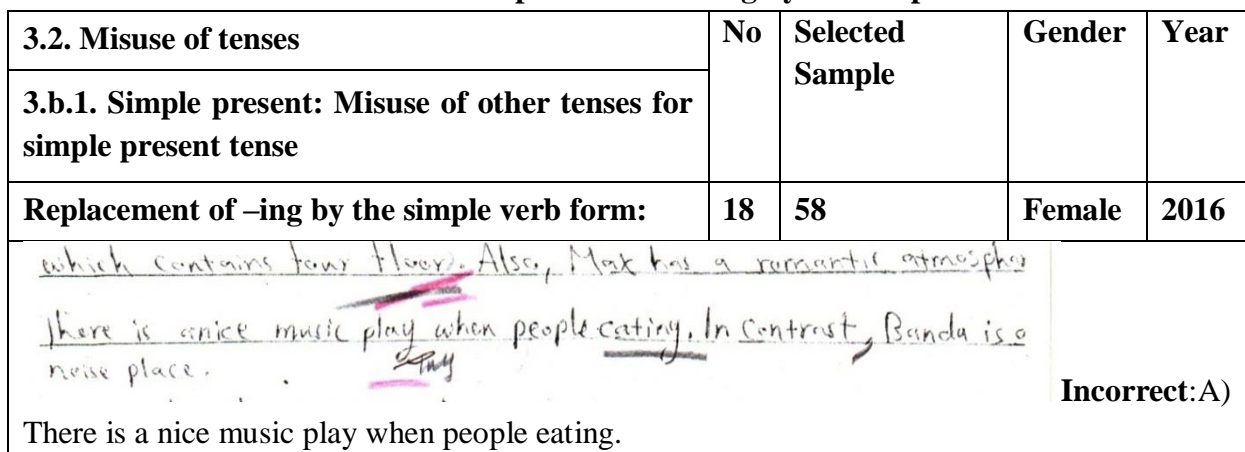 3.2. Misuse of tenses
No
Selected Sample
Gender
Year
3.b.1. Simple present: Misuse of other tenses for
simple present tense
Replacement of –ing by the simple verb form: 18 58 Female 2016
which contains four floor. Also, Max has a romantic atmospher
There is a nice music play when people eating. In Contrast, Banda is a
noise place.
Incorrect:A)
There is a nice music play when people eating.